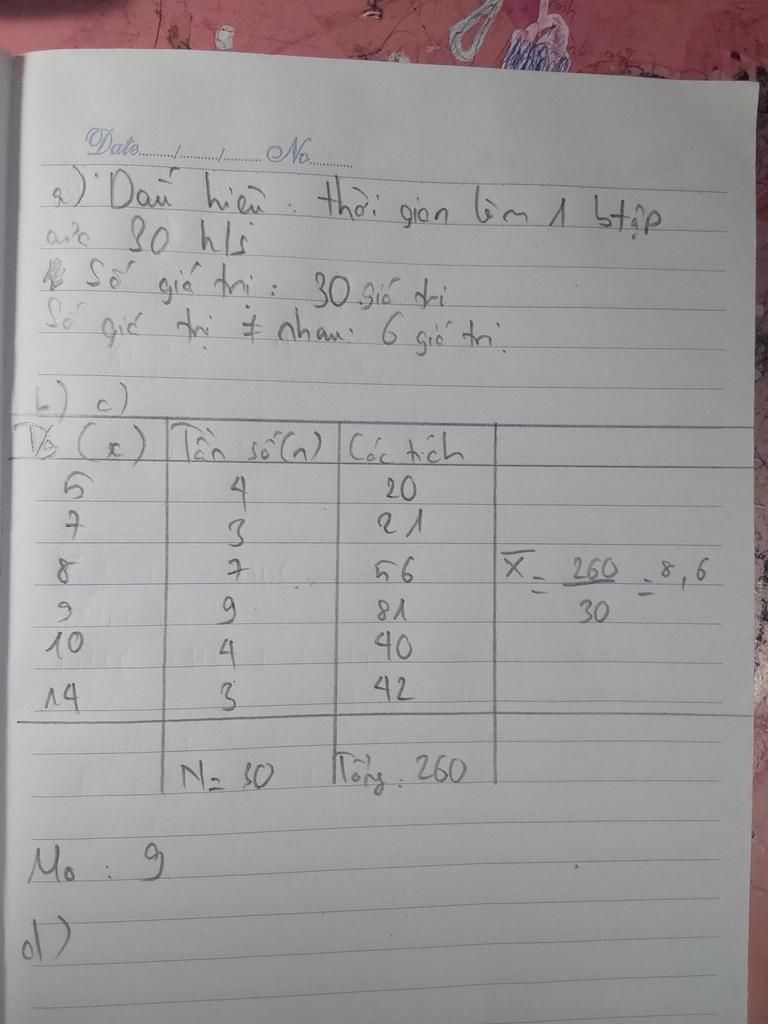 Date......../......../........ No..........
a) Dấu hiệu : thời gian làm 1 btập
của 30 h/s
Số giá trị : 30 giá trị
Số giá trị ≠ nhau: 6 giá trị.
b) c)
(x) Tần số (n) Các tích
5 4 20
7 3 21
8 7 56 X̅ = 260/30 = 8,6
9 9 81
10 4 40
14 3 42
N = 30 Tổng : 260
Mo : 9
d)